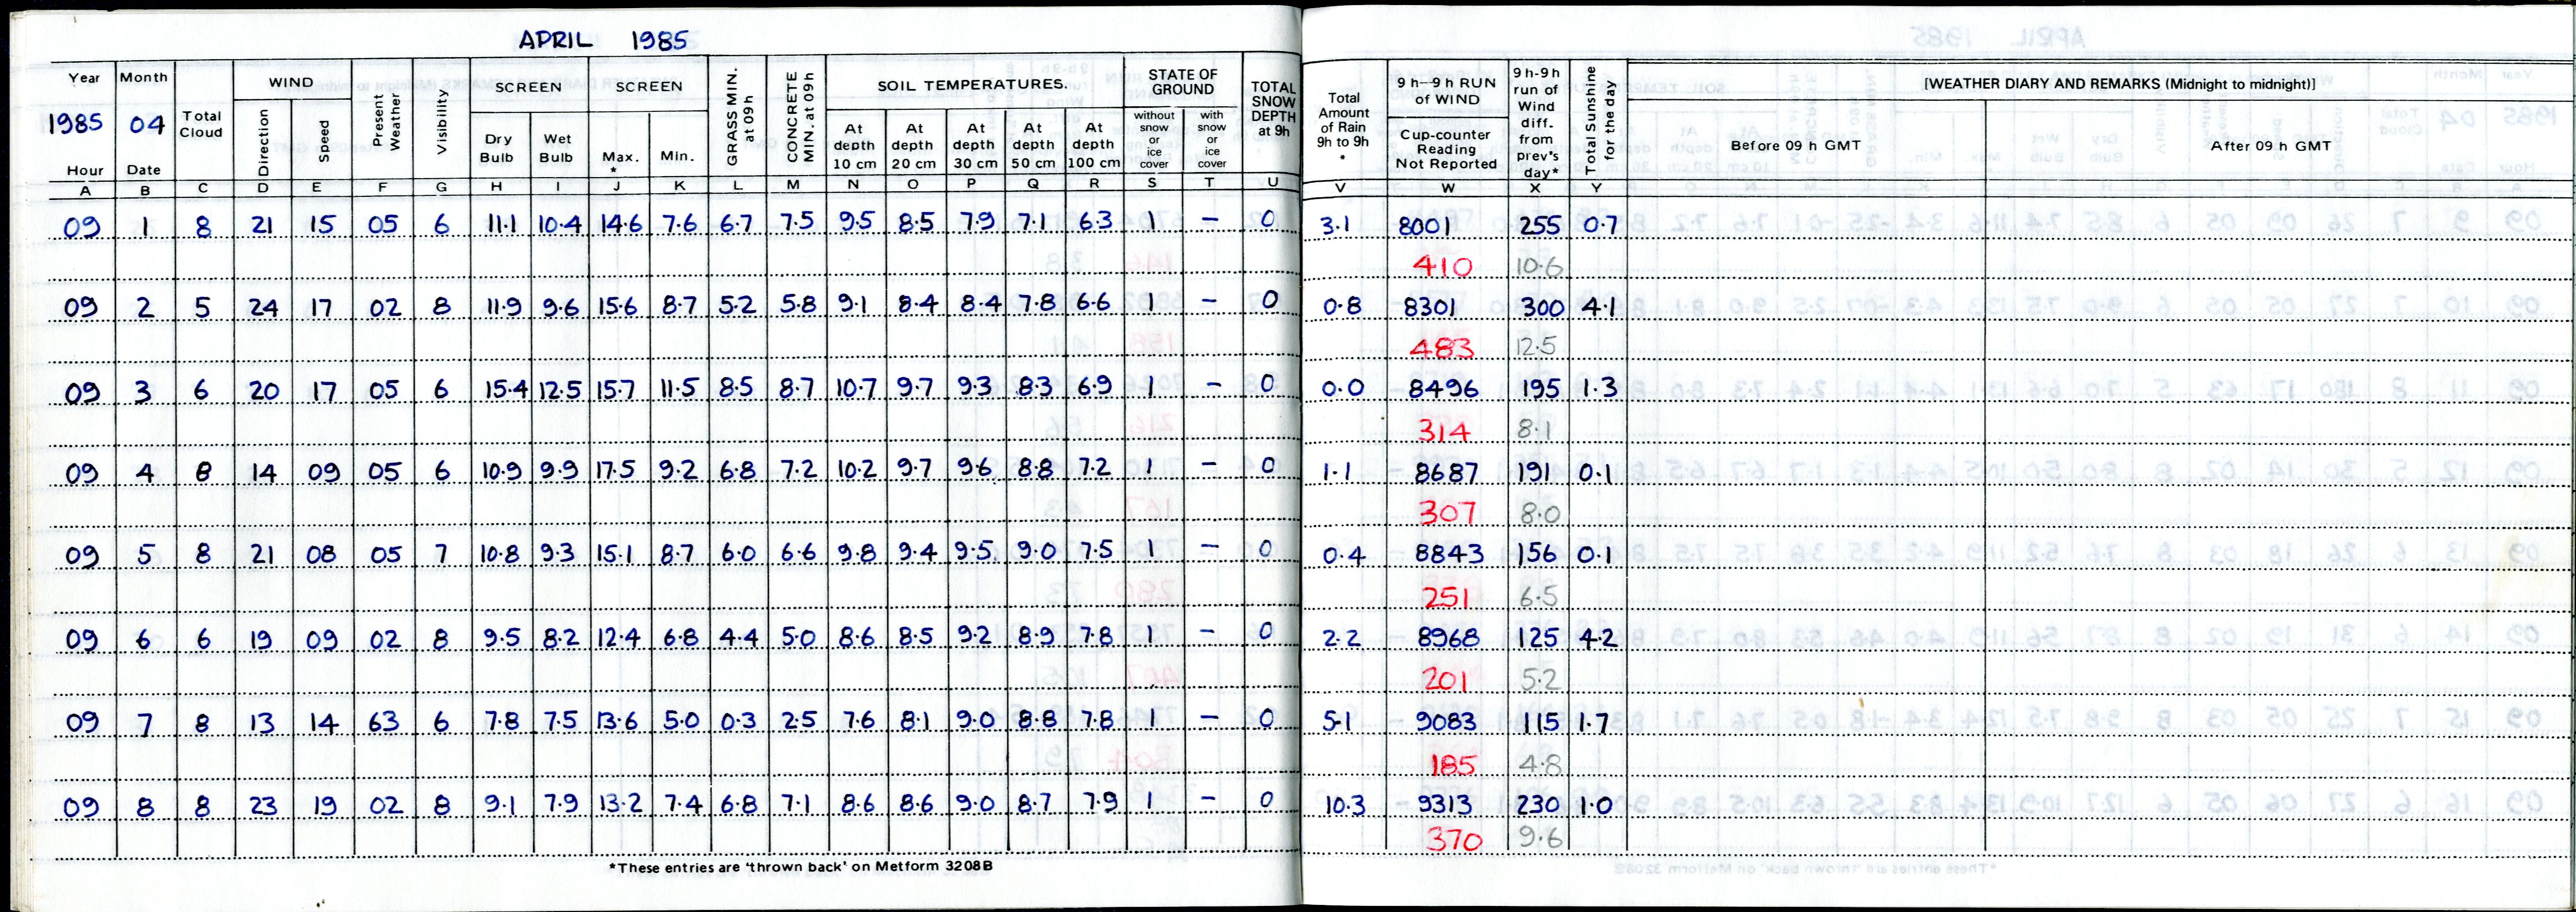 APRIL 1985
Year Month Total Cloud WIND Present Weather Visibility SCREEN SCREEN GRASS MIN. at 09h CONCRETE MIN. at 09h SOIL TEMPERATURES. STATE OF GROUND TOTAL SNOW DEPTH at 9h Total Amount of Rain 9h to 9h * 9 h–9 h RUN of WIND 9 h-9 h run of Wind diff. from prev's day* Total Sunshine for the day [WEATHER DIARY AND REMARKS (Midnight to midnight)]
1985 04 Direction Speed Dry Bulb Wet Bulb Max. * Min. At depth 10 cm At depth 20 cm At depth 30 cm At depth 50 cm At depth 100 cm without snow or ice cover with snow or ice cover Cup-counter Reading Not Reported Before 09 h GMT After 09 h GMT
Hour Date
A B C D E F G H I J K L M N O P Q R S T U V W X Y
09 1 8 21 15 05 6 11.1 10.4 14.6 7.6 6.7 7.5 9.5 8.5 7.9 7.1 6.3 1 – 0 3.1 8001 255 0.7
410 10.6
09 2 5 24 17 02 8 11.9 9.6 15.6 8.7 5.2 5.8 9.1 8.4 8.4 7.8 6.6 1 – 0 0.8 8301 300 4.1
483 12.5
09 3 6 20 17 05 6 15.4 12.5 15.7 11.5 8.5 8.7 10.7 9.7 9.3 8.3 6.9 1 – 0 0.0 8496 195 1.3
314 8.1
09 4 8 14 09 05 6 10.9 9.9 17.5 9.2 6.8 7.2 10.2 9.7 9.6 8.8 7.2 1 – 0 1.1 8687 191 0.1
307 8.0
09 5 8 21 08 05 7 10.8 9.3 15.1 8.7 6.0 6.6 9.8 9.4 9.5 9.0 7.5 1 – 0 0.4 8843 156 0.1
251 6.5
09 6 6 19 09 02 8 9.5 8.2 12.4 6.8 4.4 5.0 8.6 8.5 9.2 8.9 7.8 1 – 0 2.2 8968 125 4.2
201 5.2
09 7 8 13 14 63 6 7.8 7.5 13.6 5.0 0.3 2.5 7.6 8.1 9.0 8.8 7.8 1 – 0 5.1 9083 115 1.7
185 4.8
09 8 8 23 19 02 8 9.1 7.9 13.2 7.4 6.8 7.1 8.6 8.6 9.0 8.7 7.9 1 – 0 10.3 9313 230 1.0
370 9.6
*These entries are 'thrown back' on Metform 3208B